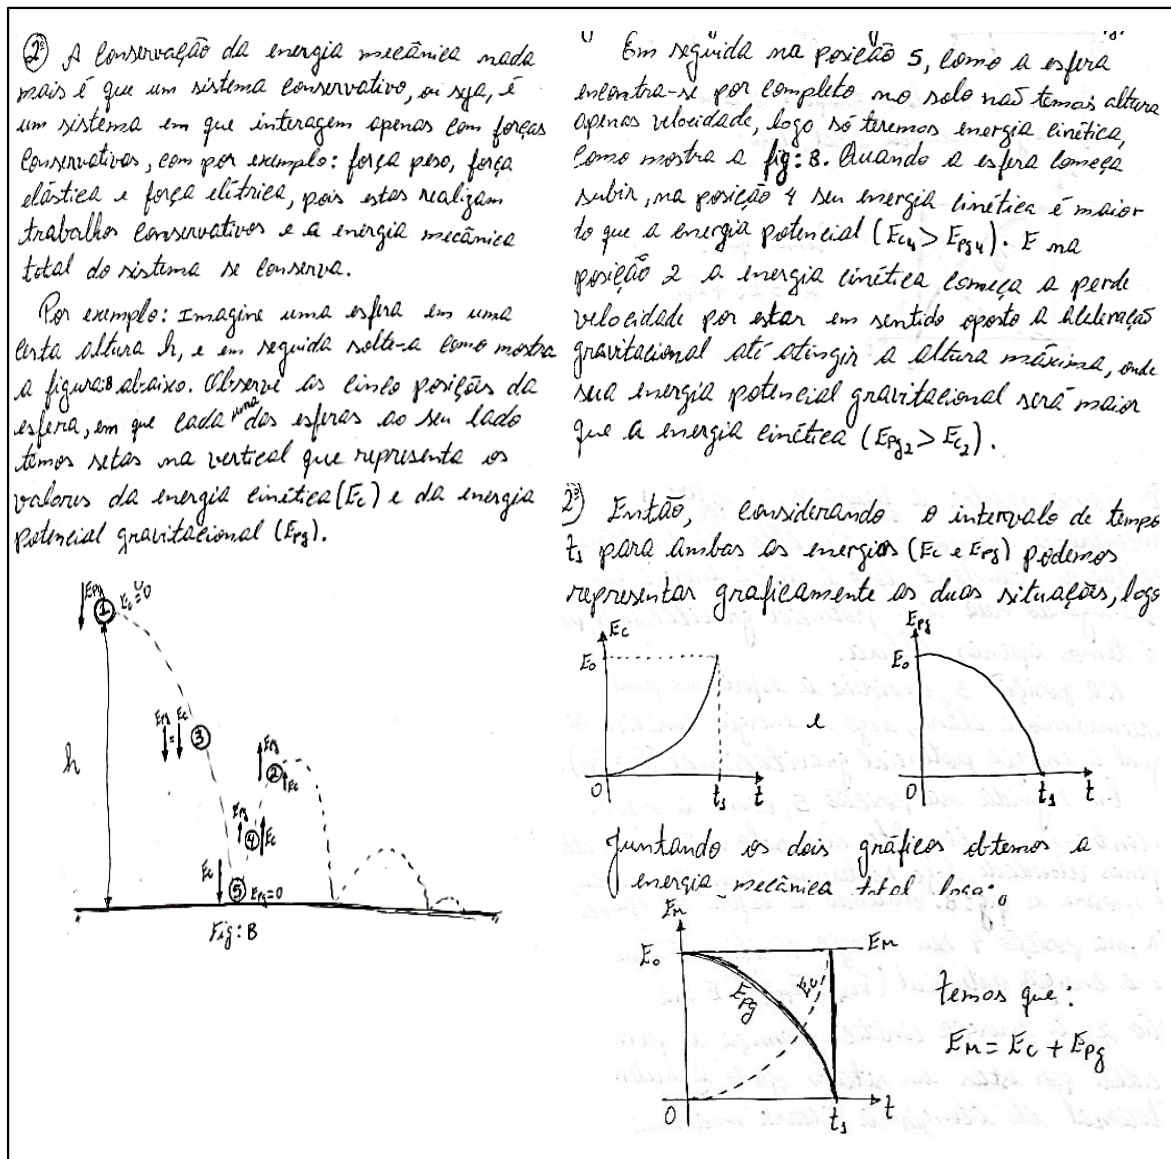 2ª) A conservação da energia mecânica nada
mais é que um sistema conservativo, ou seja, é
um sistema em que interagem apenas com forças
conservativas, com por exemplo: força peso, força
elástica e força elétrica, pois estas realizam
trabalhos conservativos e a energia mecânica
total do sistema se conserva.
Por exemplo: Imagine uma esfera em uma
certa altura h, e em seguida solte-a como mostra
a figura:B abaixo. Observe as cinco posições da
esfera, em que cada uma das esferas ao seu lado
temos setas na vertical que representa os
valores da energia cinética (Ec) e da energia
potencial gravitacional (Epg).
Epg
1
Ec=0
Epg = Ec
3
h
Epg
2
Ec
Epg
4
Ec
Ec
5
Epg=0
Fig: B
Em seguida na posição 5, como a esfera
encontra-se por completo no solo não temos altura
apenas velocidade, logo só teremos energia cinética,
como mostra a fig: B. Quando a esfera começa
subir, na posição 4 seu energia cinética é maior
do que a energia potencial (Ec4 > Epg4). E na
posição 2 a energia cinética começa a perde
velocidade por estar em sentido oposto a aceleração
gravitacional até atingir a altura máxima, onde
sua energia potencial gravitacional será maior
que a energia cinética (Epg2 > Ec2).
2ª) Então, considerando o intervalo de tempo
t1 para ambas as energias (Ec e Epg) podemos
representar graficamente as duas situações, logo
Ec
E0
0
t1
t
e
Epg
E0
0
t1
t
Juntando os dois gráficos obtemos a
energia mecânica total, logo:
EM
E0
EM
Epg
Ec
0
t1
t
temos que:
EM = Ec + Epg